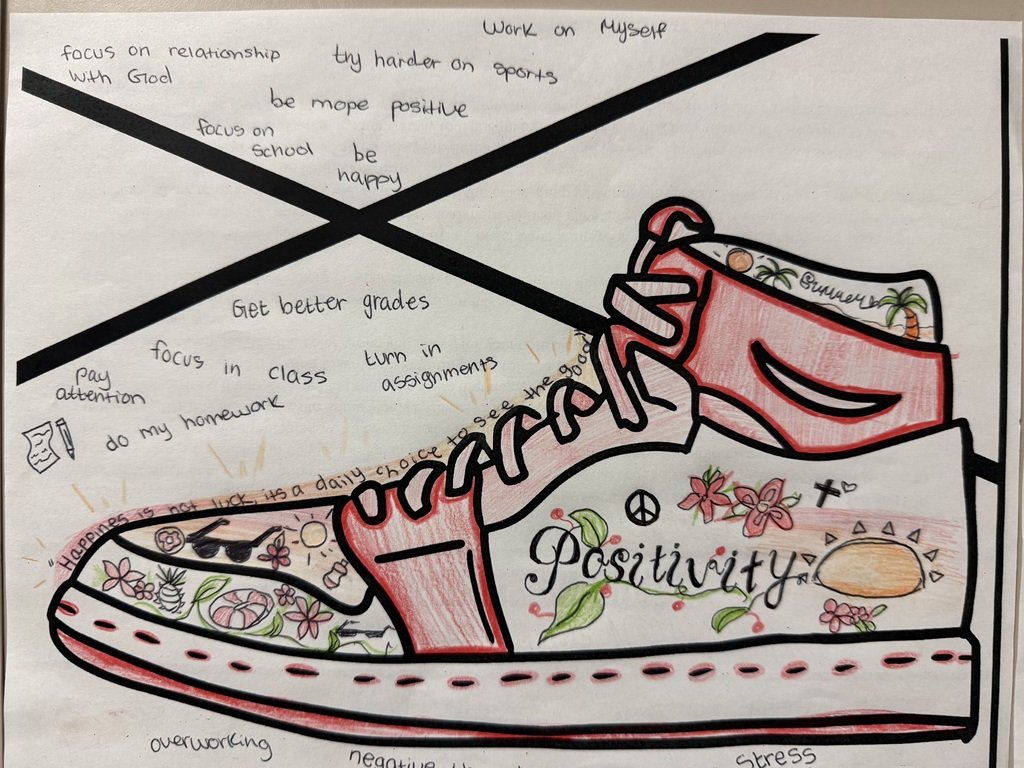 Work on Myself
focus on relationship
with God
try harder on sports
be mope positive
focus on
school
be
happy
Get better grades
focus in class
turn in
assignments
pay
attention
do my homework
"Happiness is not luck, its a daily choice to see the good"
Summer
Positivity
overworking
negative
stress